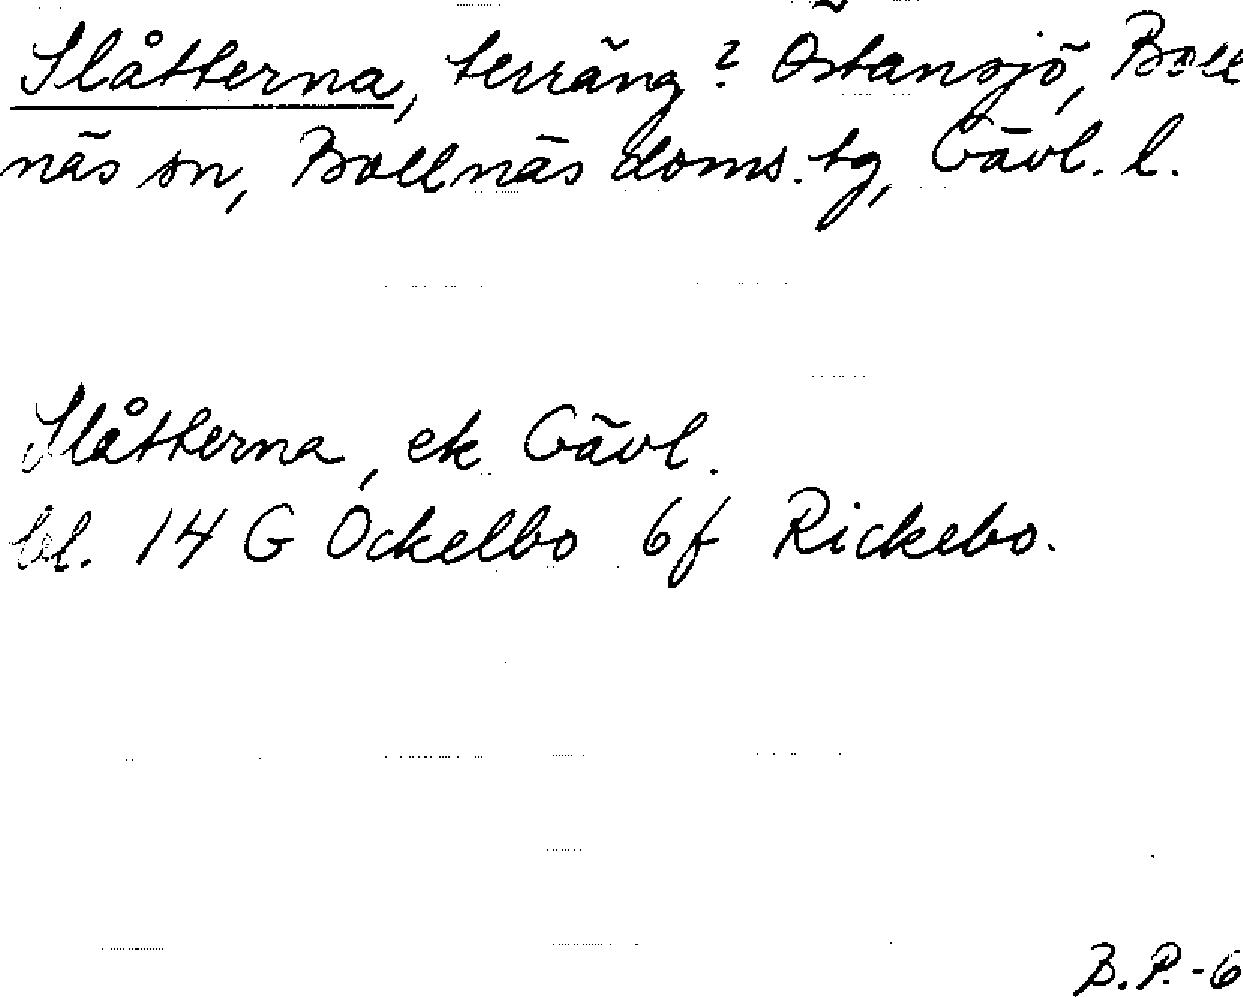 Slåtterna, terräng? Östansjö, Boll
näs sn, Bollnäs doms. tg, Gävl. l.
Slåtterna, ek Gävl.
bl. 14 G Ockelbo 6f Rickebo.
B.P.-6